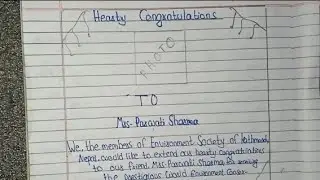 Hearty Congratulations
PHOTO
TO
Mrs. Parvati Sharma
We, the members of Environment Society of Kathmandu,
Nepal would like to extend our hearty congratulations
to our friend Mrs. Parvati Sharma, for
the prestigious World Environment